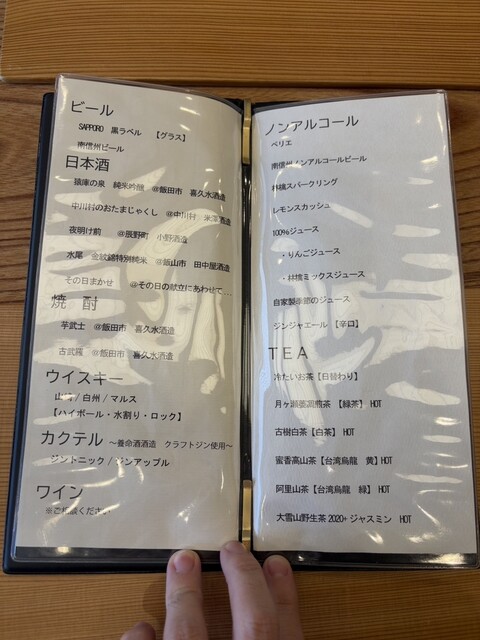 ビール
SAPPORO 黒ラベル 【グラス】
南信州ビール
日本酒
猿庫の泉 純米吟醸 @飯田市 喜久水酒造
中川村のおたまじゃくし @中川村 米澤酒造
夜明け前 @辰野町 小野酒造
水尾 金紋錦特別純米 @飯山市 田中屋酒造
その日まかせ @その日の献立にあわせて...
焼 酎
芋武士 @飯田市 喜久水酒造
古武羅 @飯田市 喜久水酒造
ウイスキー
山崎/白州/マルス
【ハイボール・水割り・ロック】
カクテル ~養命酒酒造 クラフトジン使用~
ジントニック/ジンアップル
ワイン
※ご相談ください
ノンアルコール
ペリエ
南信州ノンアルコールビール
林檎スパークリング
レモンスカッシュ
100%ジュース
・りんごジュース
・林檎ミックスジュース
自家製季節のジュース
ジンジャエール 【辛口】
TEA
冷たいお茶【日替わり】
月ヶ瀬 煎茶 【緑茶】 HOT
古樹白茶【白茶】 HOT
蜜香高山茶【台湾烏龍 黄】HOT
阿里山茶【台湾烏龍 緑】 HOT
大雪山野生茶 2020+ジャスミン HOT